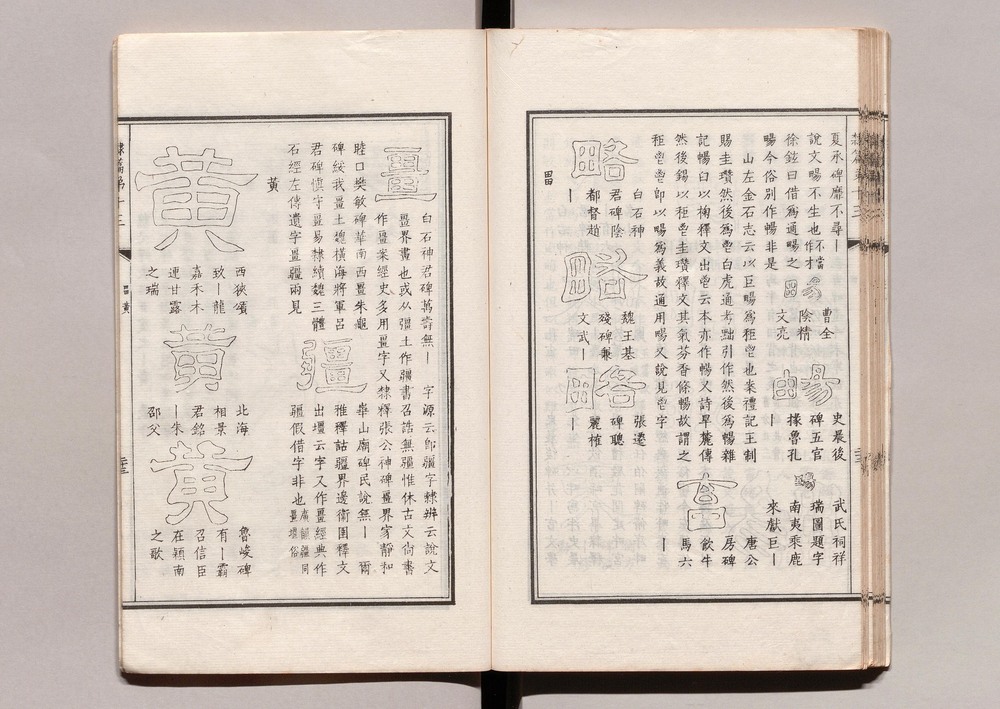 夏承碑靡不尋丨
說文畼不生也
徐鉉曰借爲通畼之
畼今俗別作暢非是
畼
曹全
陰精
文亮
畼
史晨後
碑五官
掾魯孔
丨
畼
武氏祠祥
瑞圖題字
南夷乘鹿
來獻巨丨
山左金石志云以巨畼爲秬鬯也案禮記王制
賜圭瓚然後爲鬯白虎通考黜引作然後爲暢雜
記暢臼以椈釋文出鬯云本亦作暢又詩旱麓傳
然後錫以秬鬯圭瓚釋文其氣芬香條暢故謂之
秬鬯鬯卽以畼爲義故通用畼又說見鬯字
畜
唐公
房碑
飲牛
馬六
丨
略
白石神
君碑陰
都督趙
丨
略
魏王基
殘碑兼
文武丨
略
張遷
碑聰
麗權
丨
畕
畺
白石神君碑萬壽無丨
字源云卽疆字隸辨云說文
畺界畫也或从彊土作疆書召誥無疆惟休古文尙書
作畺案經史多用畺字又隸釋張公神碑畺界家靜和
睦口樊敏碑華南西畺朱龜
碑綏我畺土魏橫海將軍呂
君碑愼字畺易隸續魏三體
石經左傳遺字畺疆兩見
疆
華山廟碑民說無丨 爾
雅釋詁疆界邊衛圉釋文
出壃云字又作畺經典作
疆假借字非也
廣韻疆同
畺壃俗
黃
黃
西狹頌
致丨龍
嘉禾木
連甘露
之瑞
黃
北海
相景
君銘
丨朱
邵父
黃
魯峻碑
有丨霸
召信臣
在穎南
之歌
隸篇第十三
畕 黃